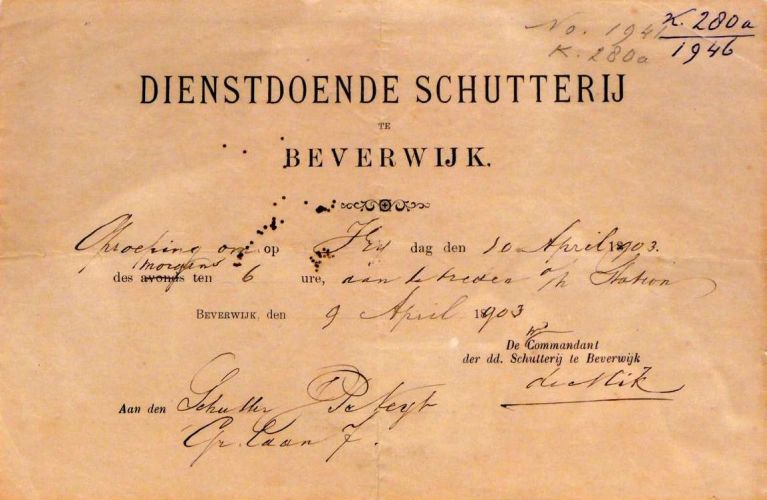 No. 1941
K. 280a
K. 280a
1946
DIENSTDOENDE SCHUTTERIJ
TE
BEVERWIJK.
Oproeping om op Vrij dag den 10 April 1903.
morgens
des avonds ten 6 ure, aan te treden o/h Station
BEVERWIJK, den 9 April 1903
De Commandant
der dd. Schutterij te Beverwijk
de Mik
Aan den Schutter P
Laan 7.